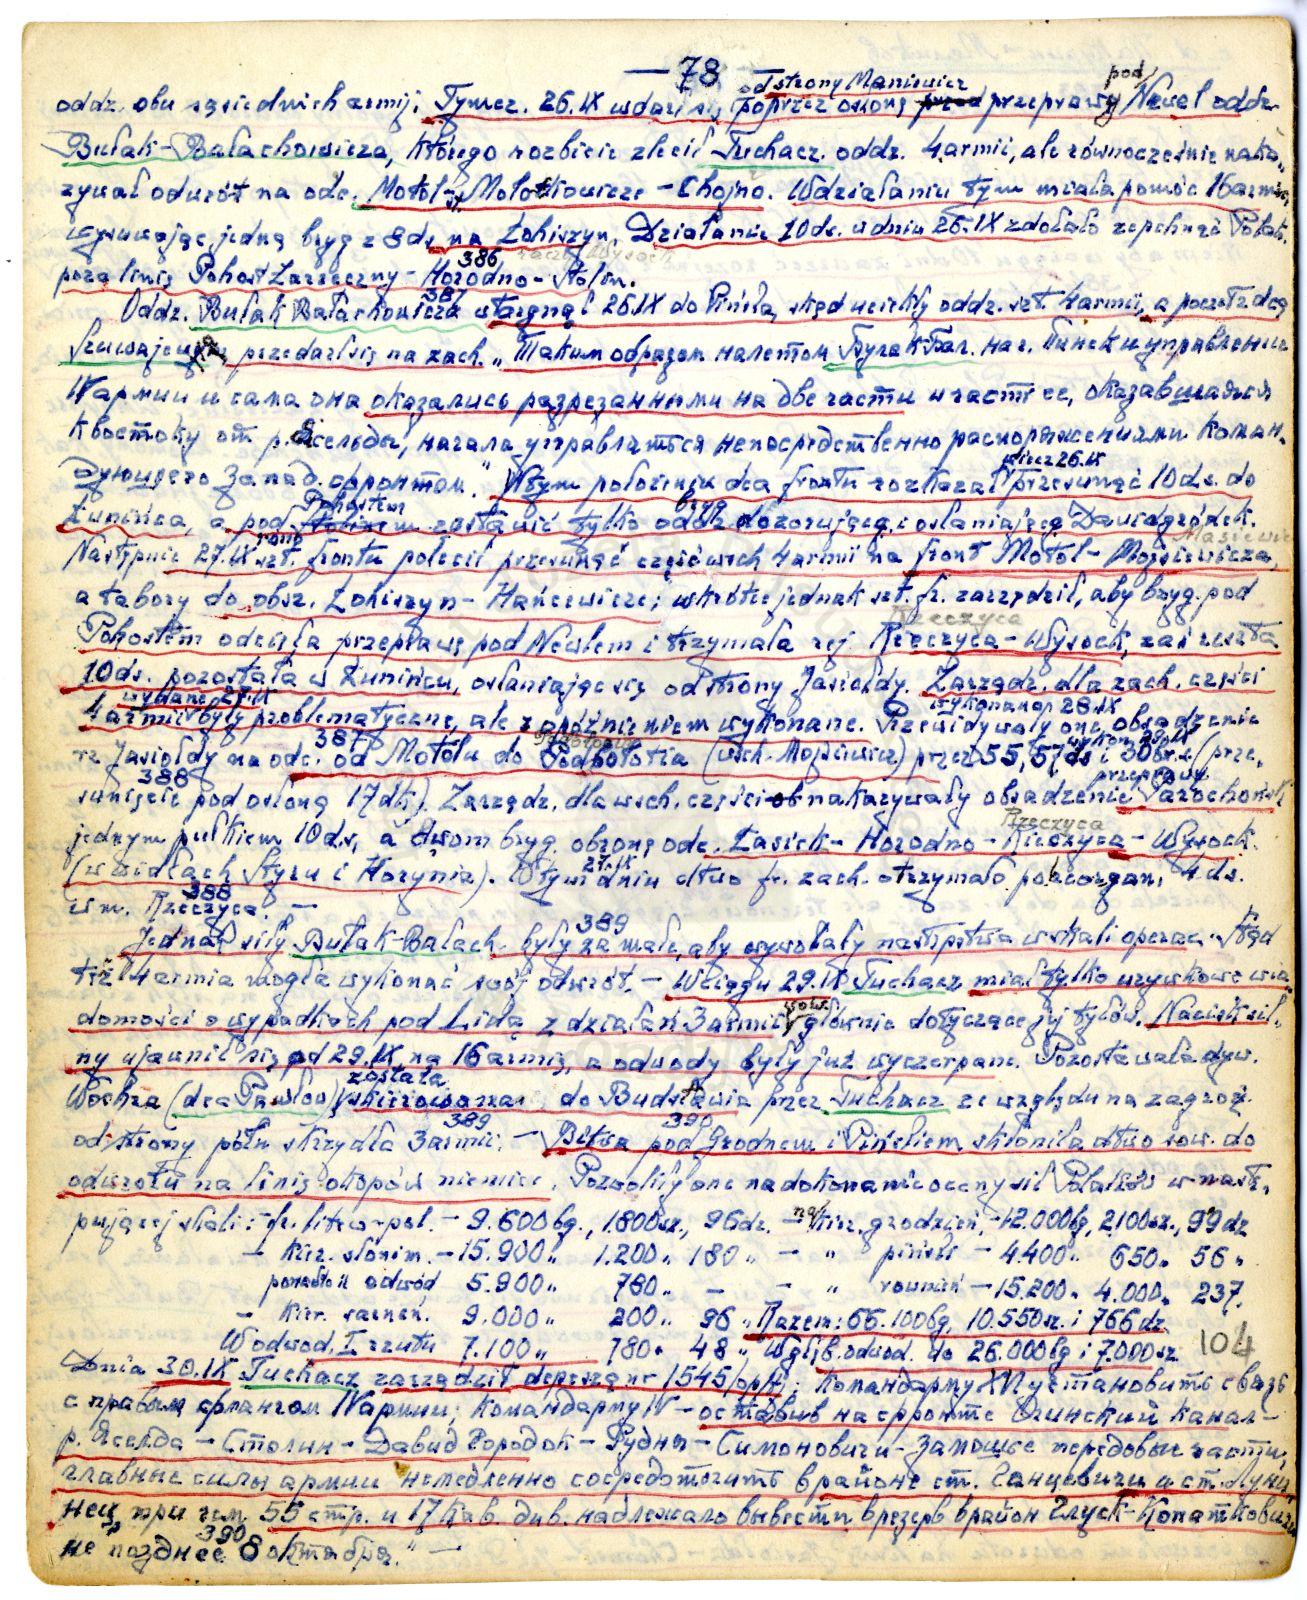 — 78 —
od strony Maniewicz pod
oddz. obu sąsiednich armij. Tymcz. 26.IX wdarł się poprzez osłonę przed przeprawy Newel oddz.
Bułak-Bałachowicza, którego rozbicie zlecił Tuchacz. oddz. 4 armii, ale równocześnie naka-
zywał odwrót na odc. Motol - Mołotkowicze - Chojno. W działaniu tym miała pomóc 16 armia,
wysuwając jedną bryg z 8 ds. na Łohiszyn. Działanie 10 ds. w dniu 26.IX zdołało zepchnąć Polak.
386
poza linię Pohost Zarzeczny - Horodno - Stolin.
387
Oddz. Bułak Bałachowicza wtargnął 26.IX do Pińska, skąd uciekły oddz. szt. 4 armii, a pozost. dca
Szuwajew przedarł się na zach. "Таким образом налетом Булак Бал. на г. Пинск и управление
IV армии и сама она оказались разрезанными на две части и части ее, оказавшаяся
к востоку от р. Ясельды, начала управляться непосредственно распоряжениями Коман-
дующего Запад. фронтом." W tym położeniu dca frontu rozkazał wiecz 26.IX przesunąć 10 ds. do
Łunińca, a pod Pohostem zostawić tylko oddz. dozorującą i osłaniającą bryg Dawidgródek.
Następnie 27.IX rano szt. frontu polecił przesunąć część wsch 4 armii na front Motol - Mojsiewicze,
a tabory do obsz. Łohiszyn - Hańcewicze; wkrótce jednak szt. fr. zarządził, aby bryg. pod
Rzeczyca
Pohostem odcięła przeprawę pod Newlem i trzymała rej. Rzeczyca - Wysock, zaś reszta
10 ds. pozostała w Łunińcu, osłaniając się od strony Jasiołdy. Zarządz. dla zach. części
wydane 27.IX wykonano 28.IX
4 armii były problematyczne, ale z opóźnieniem wykonane. Przewidywały one obsadzenie
387
rz Jasiołdy na odc. od Motolu do Podbołotia (wsch. Mojsiewicz) przez 55, 57 ds i 30 br. s. (prze-
388 przeprawy
sunięcie pod osłoną 17 dk). Zarządz. dla wsch. części nakazywały obsadzenie Parochońsk
Rzeczyca
jednym pułkiem 10 ds, a dwom bryg. obronę odc. Łasick - Horodno - Rzeczyca - Wysock
27.IX
(w widłach Styru i Horynia). W tym dniu dtwo fr. zach. otrzymało po reorgan. 4 ds.
388
w m. Rzeczyca. —
389
Jednak siły Bułak-Bałach. były za małe, aby wywołały następstwa w skali operac. Stąd
też 4 armia mogła wykonać swój odwrót. — W ciągu 29.IX Tuchacz miał tylko urywkowe wia-
domości o wypadkach pod Lidą z działań 3 armii sow. głównie dotyczące jej tyłów. Nacisk sil-
ny ujawnił się od 29.IX na 16 armię, a odwody były już wyczerpane. Pozostawała dyw.
Wochra (dca Pawłow) została skierowana do Budsławia przez Tuchacz ze względu na zagroż.
389 390
od strony półn skrzydła 3 armii. — Bitwa pod Grodnem i Pińskiem skłoniła dtwo sow. do
odwrotu na linię okopów niemiec. Pozwoliły one na dokonanie oceny sił Polaków w nastę-
pującej skali: fr. litew-pol. - 9.600 bg., 1.800 sz., 96 dz. — na kier. grodzień. - 12.000 bg, 2.100 sz., 99 dz
— kier. słonim. - 15.900 „ 1.200 „ 180 „ — „ pińsk. - 4.400 „ 650 „ 56 „
ponadto w odwód. 5.900 „ 780 „ — — „ rówień - 15.200 „ 4.000 „ 237.
— kier. sarneń. 9.000 „ 200 „ 96 „ Razem: 66.100 bg, 10.550 sz. i 766 dz
W odwod. I rzutu 7.100 „ 780 „ 48 „ W głęb. odwod. do 26.000 bg i 7.000 sz 104
Dnia 30.IX Tuchacz zarządził depeszą nr 1545/op/t: Командарму XVI установить связь
с правым флангом IV армии; Командарму IV — оставив на фронте Огинский канал -
р. Ясельда - Столин - Давид Городок - Рудня - Симоновичи - Замошье передовые части,
главные силы армии немедленно сосредоточить в районе ст. Ганцевичи и ст. Луни-
нец, при чем 55 стр. и 17 кав. див. надлежало вывести в резерв в район Глуск - Копаткевичи
390
не позднее 8 октября." —